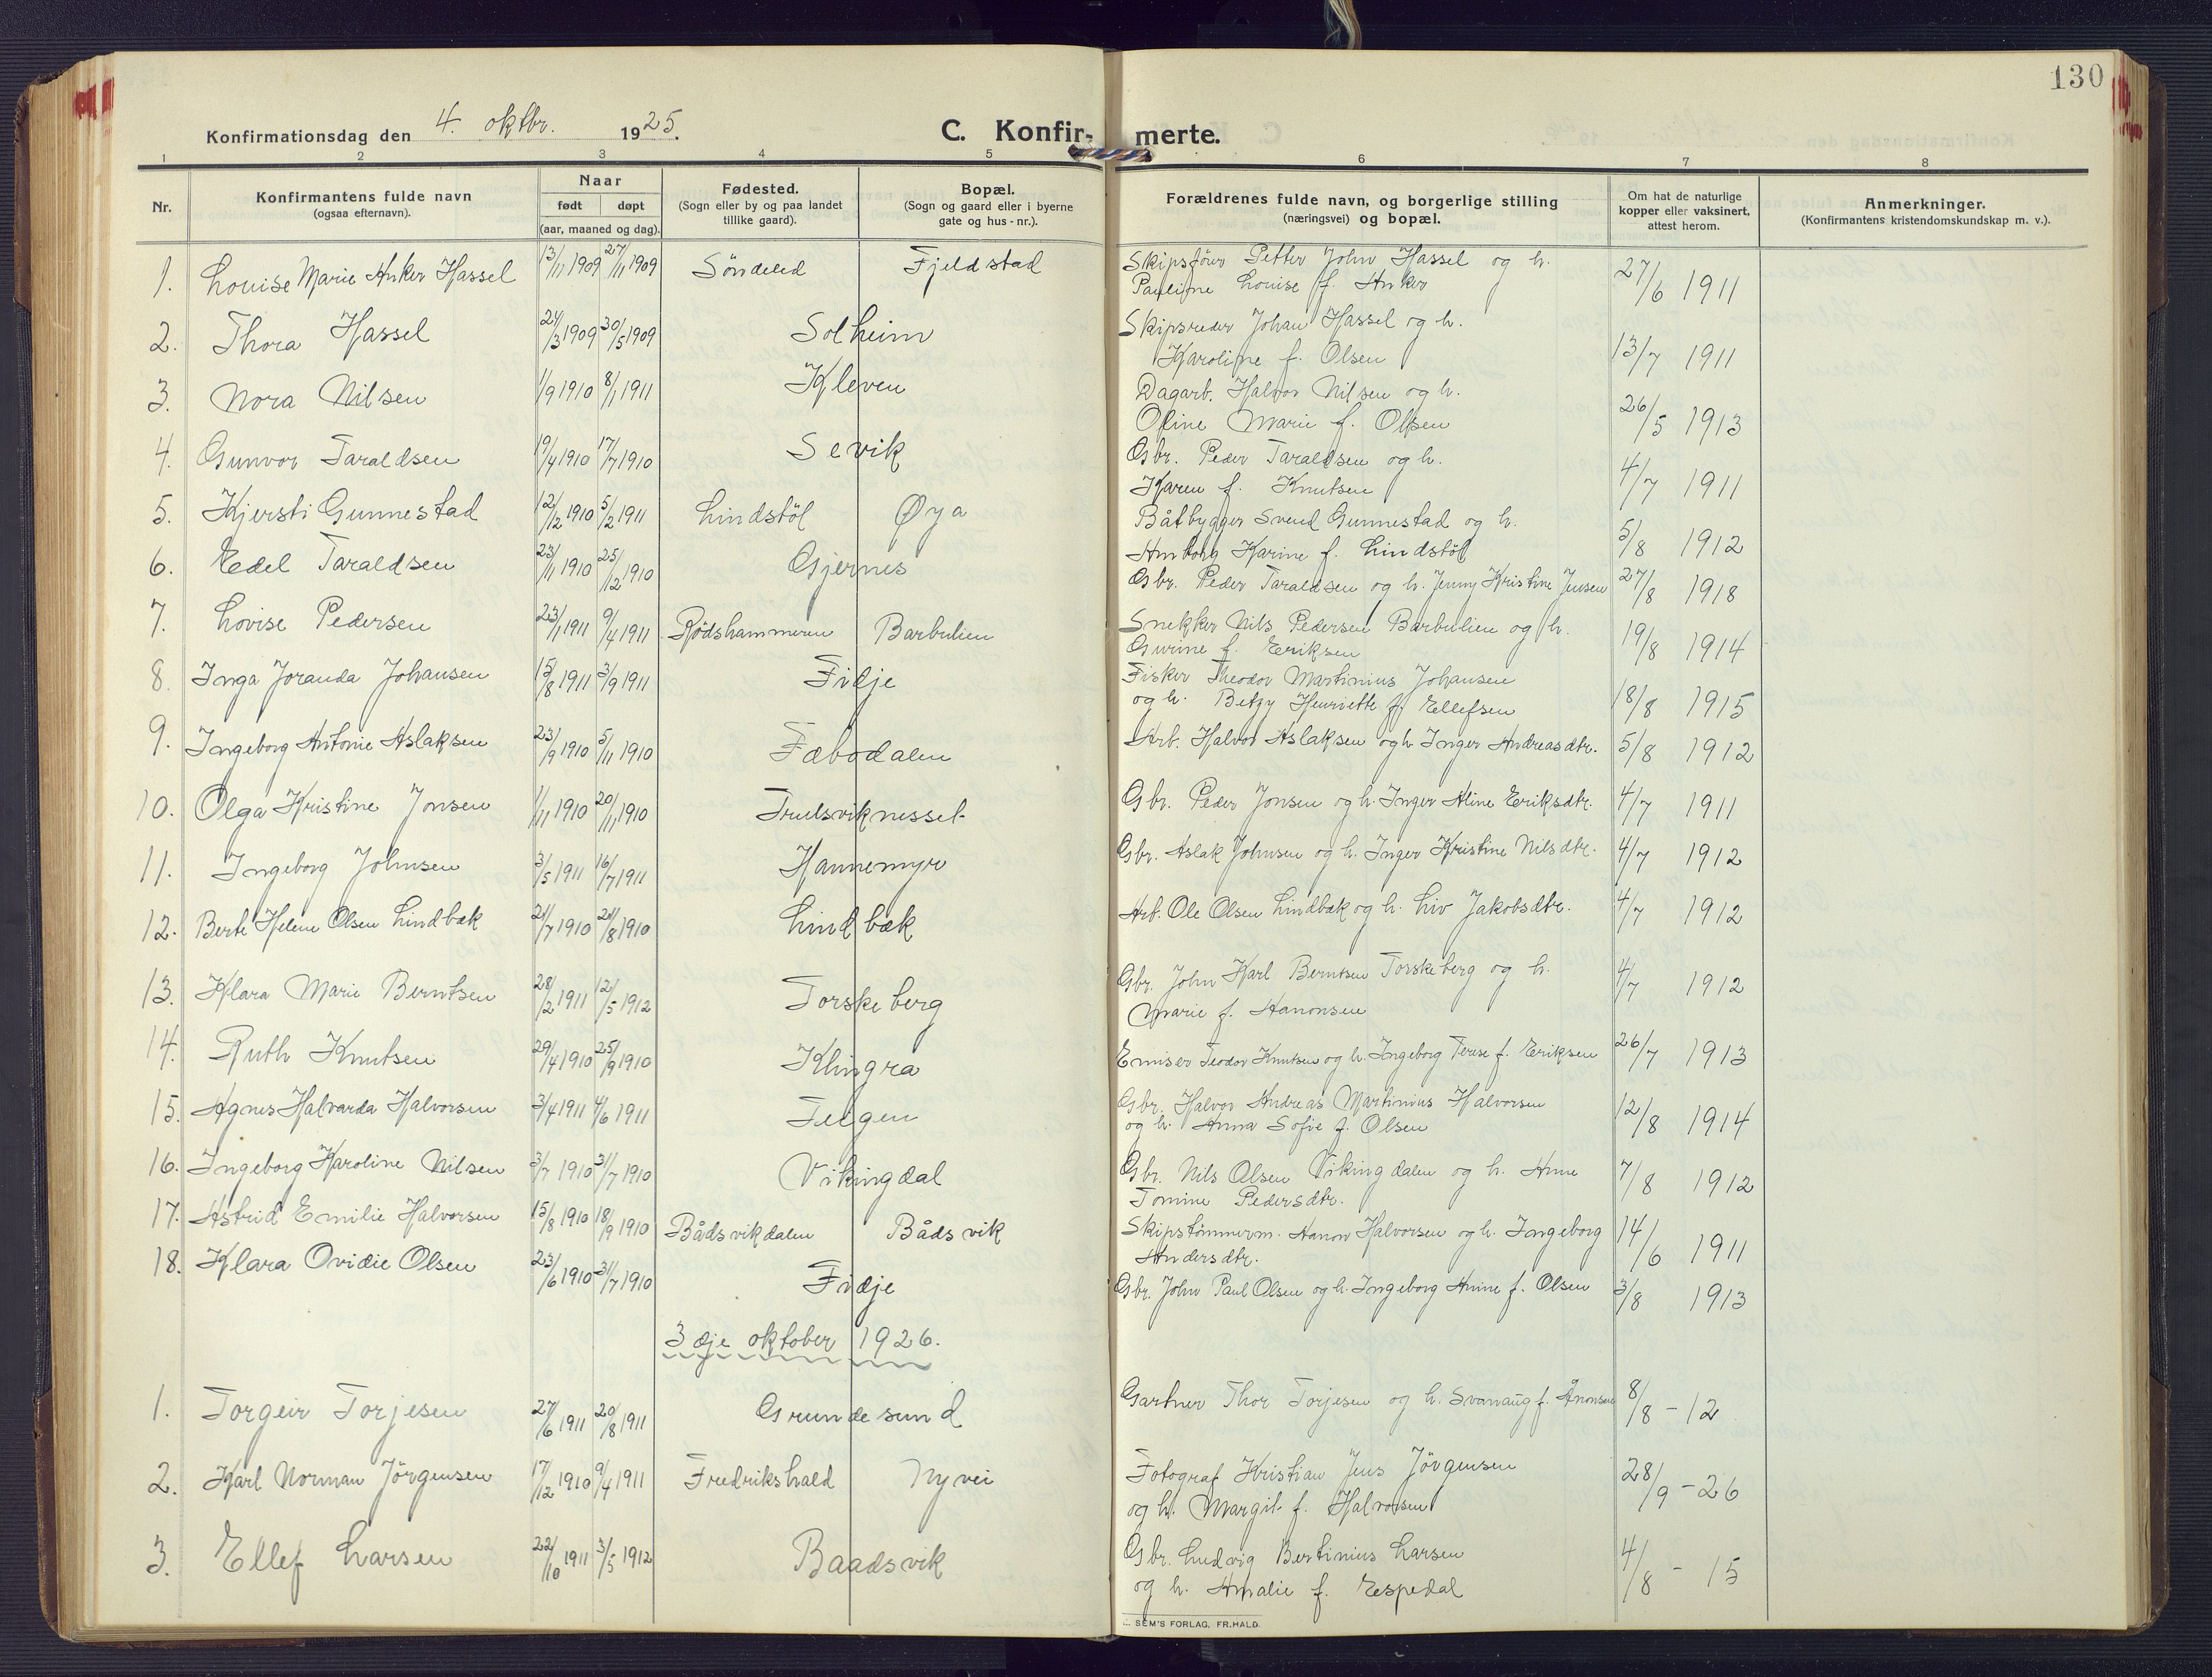 130
Konfirmationsdag den 4. oktbr. 1925.
C. Konfir- merte.
1 2 3 4 5 6 7 8
Nr.
Konfirmantens fulde navn
(ogsaa efternavn).
Naar
født døpt
(aar, maaned og dag).
Fødested.
(Sogn eller by og paa landet
tillike gaard).
Bopæl.
(Sogn og gaard eller i byerne
gate og hus-nr.).
Forældrenes fulde navn, og borgerlige stilling
(næringsvei) og bopæl.
Om hat de naturlige
kopper eller vaksinert,
attest herom.
Anmerkninger.
(Konfirmantens kristendomskundskap m. v.).
1. Louise Marie Anker Hassel 13/11 1909 27/11 1909 Søndeled Fjeldstad Skipsfører Petter John Hassel og h.
Pauline Louise f. Anker 27/6 1911
2. Thora Hassel 24/3 1909 30/5 1909 Solheim Skipsreder Johan Hassel og h.
Karoline f. Olsen 13/7 1911
3. Nora Nilsen 1/9 1910 8/1 1911 Kleven Dagarb. Halvor Nilsen og h.
Oline Marie f. Olsen 26/5 1913
4. Gunvor Taraldsen 19/4 1910 17/7 1910 Sevik Gbr. Peder Taraldsen og h.
Karen f. Knutsen 4/7 1911
5. Kjersti Gunnestad 12/12 1910 5/2 1911 Lindstøl Øya Båtbygger Svend Gunnestad og h.
Amborg Karine f. Lindstøl 5/8 1912
6. Edel Taraldsen 23/11 1910 25/12 1910 Gjernes Gbr. Peder Taraldsen og h. Jenny Kristine Jensen 27/8 1918
7. Lovise Pedersen 23/1 1911 9/4 1911 Rødshammeren Barbulien Snekker Nils Pedersen Barbulien og h.
Gurine f. Eriksen 19/8 1914
8. Inga Joranda Johansen 15/8 1911 3/9 1911 Fidje Fisker Theodor Martinius Johansen
og h. Betzy Henriette f. Ellefsen 18/8 1915
9. Ingeborg Antonie Aslaksen 23/9 1910 5/11 1910 Fæbodalen Arb. Halvor Aslaksen og h Inger Andreasdtr. 5/8 1912
10. Olga Kristine Jonsen 1/11 1910 20/11 1910 Truelsviknesset Gbr. Peder Jonsen og h. Inger Aline Eriksdtr. 4/7 1911
11. Ingeborg Johnsen 3/5 1911 16/7 1911 Hannemyr Gbr. Aslak Johnsen og h. Inger Kristine Nilsdtr. 4/7 1912
12. Berte Helene Olsen Lindbæk 21/7 1910 21/8 1910 Lindbæk Arb. Ole Olsen Lindbæk og h. Liv Jakobsdtr. 4/7 1912
13. Klara Marie Berntsen 28/2 1911 12/5 1912 Torskeberg Gbr. John Karl Berntsen Torskeberg og h.
Marie f. Hanonsen 4/7 1912
14. Ruth Knutsen 29/4 1910 25/9 1910 Klingra Emiser Teodor Knutsen og h. Ingeborg Terese f. Eriksen 26/7 1913
15. Agnes Halvarda Halvorsen 3/4 1911 4/6 1911 Felgen Gbr. Halvor Andreas Martinius Halvorsen
og h. Anna Sofie f. Olsen 12/8 1914
16. Ingeborg Karoline Nilsen 3/7 1910 31/7 1910 Vikingdal Gbr. Nils Olsen Vikingdalen og h. Anne
Tomine Pedersdtr. 7/8 1912
17. Astrid Emilie Halvorsen 15/8 1910 18/9 1910 Bådsvikdalen Bådsvik Skipstømmerm. Hanon Halvorsen og h. Ingeborg
Andersdtr. 14/6 1911
18. Klara Ovidie Olsen 23/6 1910 31/7 1910 Fidje Gbr. John Paul Olsen og h. Ingeborg Anine f. Olsen 3/8 1913
3dje oktober 1926.
1. Torgeir Torjesen 27/6 1911 20/8 1911 Grundesund Gartner Thor Torjesen og h. Svanaug f. Ånonsen 8/8 - 12
2. Karl Norman Jörgensen 17/12 1910 9/4 1911 Fredrikshald Nyvei Fotograf Kristian Jens Jörgensen
og h. Margit f. Halvorsen 28/9 - 26
3. Ellef Larsen 22/10 1911 3/5 1912 Baadsvik Gbr. Ludvig Bertinius Larsen
og h. Amalie f. Espedal 4/8 - 15
SEM'S FORLAG, FR.HALD.